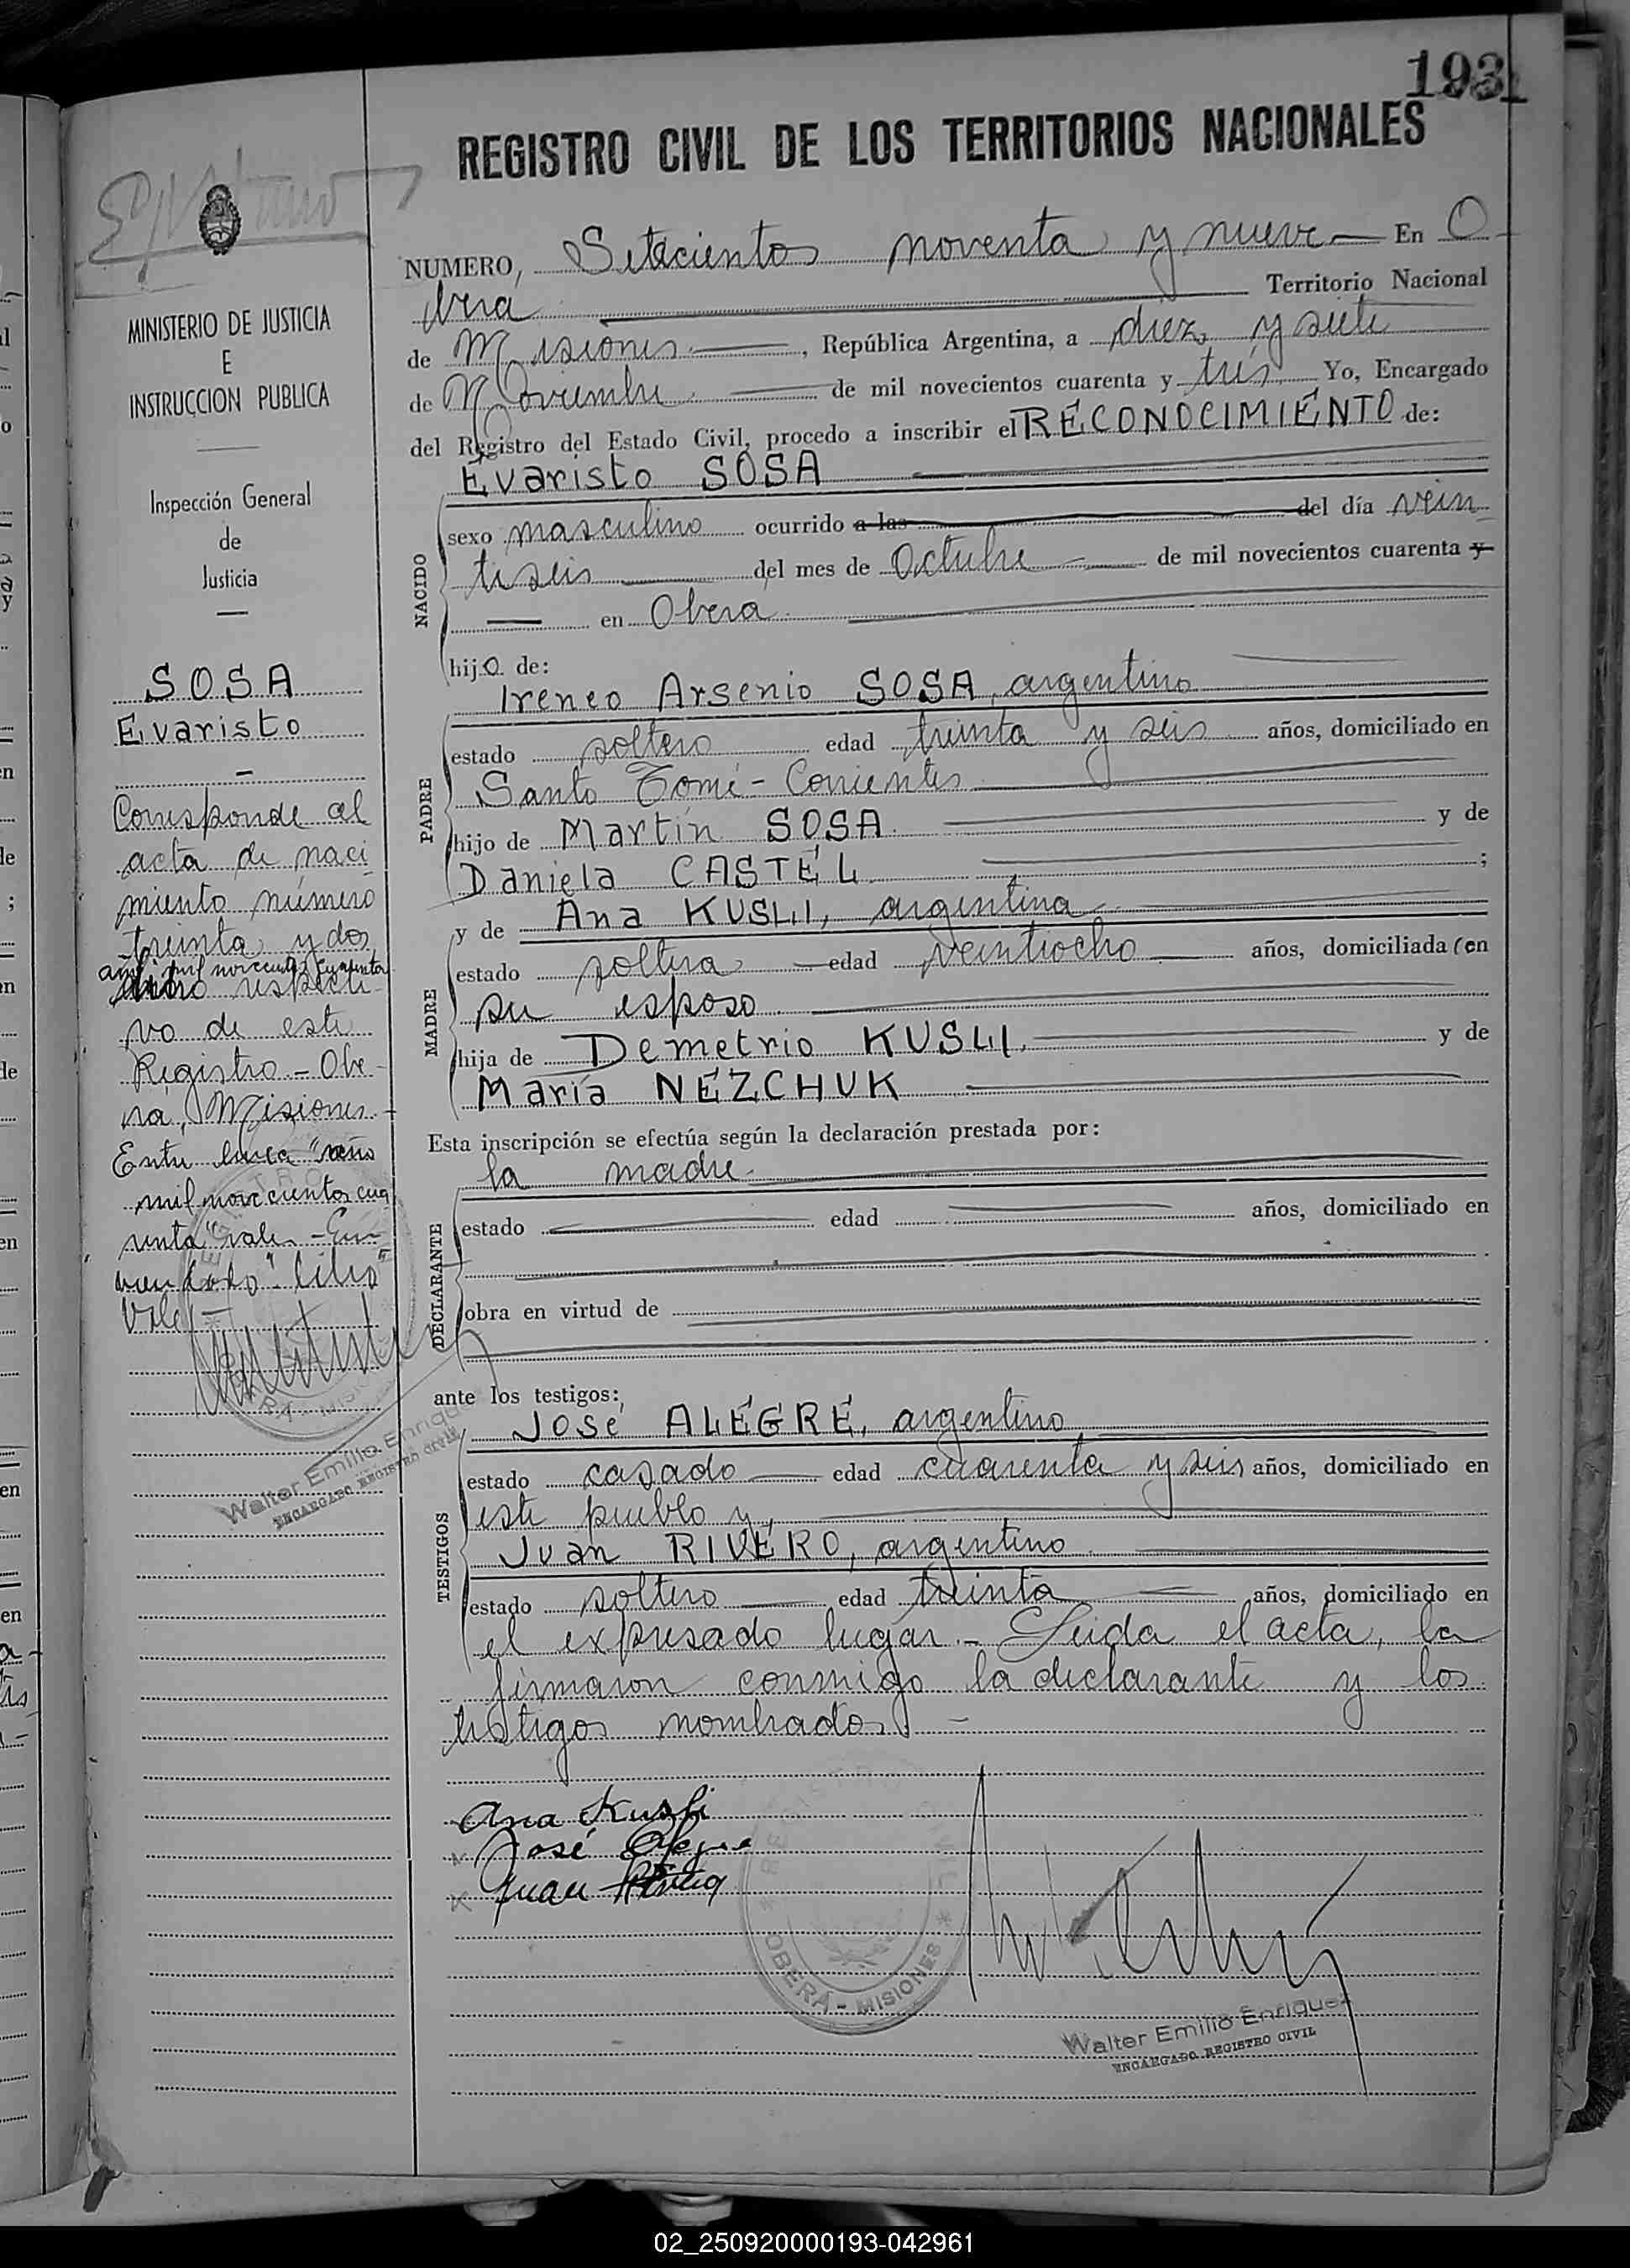 193
REGISTRO CIVIL DE LOS TERRITORIOS NACIONALES
NUMERO, Setecientos noventa y nueve — En O
berá Territorio Nacional
de Misiones — , República Argentina, a diez y siete
de Noviembre — de mil novecientos cuarenta y tres Yo, Encargado
del Registro del Estado Civil, procedo a inscribir el RECONOCIMIENTO de:
Evaristo SOSA
NACIDO
sexo masculino ocurrido a las del día vein
tiseis — del mes de Octubre — de mil novecientos cuarenta y
— en Obera
hijo de:
PADRE
Ireneo Arsenio SOSA, argentino
estado soltero edad treinta y seis años, domiciliado en
Santo Tomé - Corrientes
hijo de Martín SOSA y de
Daniela CASTEL ;
MADRE
y de Ana KUSLII, argentina
estado soltera — edad veintiocho — años, domiciliada (en
su esposo
hija de Demetrio KUSLII, y de
María NEZCHUK
Esta inscripción se efectúa según la declaración prestada por:
DECLARANTE
la madre
estado edad años, domiciliado en
obra en virtud de
ante los testigos:
TESTIGOS
José ALEGRE, argentino
estado casado — edad cuarenta y seis años, domiciliado en
este pueblo y,
Juan RIVERO, argentino
estado soltero — edad treinta — años, domiciliado en
el expresado lugar.- Leida el acta, la
firmaron conmigo la declarante y los
testigos nombrados.-
Ana Kusli
José Alegre
Juan
REGISTRO CIVIL
OBERÁ - MISIONES
Walter Emilio Enriquez
ENCARGADO REGISTRO CIVIL
MINISTERIO DE JUSTICIA
E
INSTRUCCION PUBLICA
Inspección General
de
Justicia
SOSA
Evaristo
—
Corresponde al
acta de naci
miento número
treinta y dos
año mil novecientos cuarenta
libro respecti-
vo de este
Registro.- Obe-
rá, Misiones.-
Entre linea "año
mil novecientos cua
renta" vale.- En-
mendado "libro"
Vale.-
Walter Emilio Enriquez
ENCARGADO REGISTRO CIVIL
02_250920000193-042961